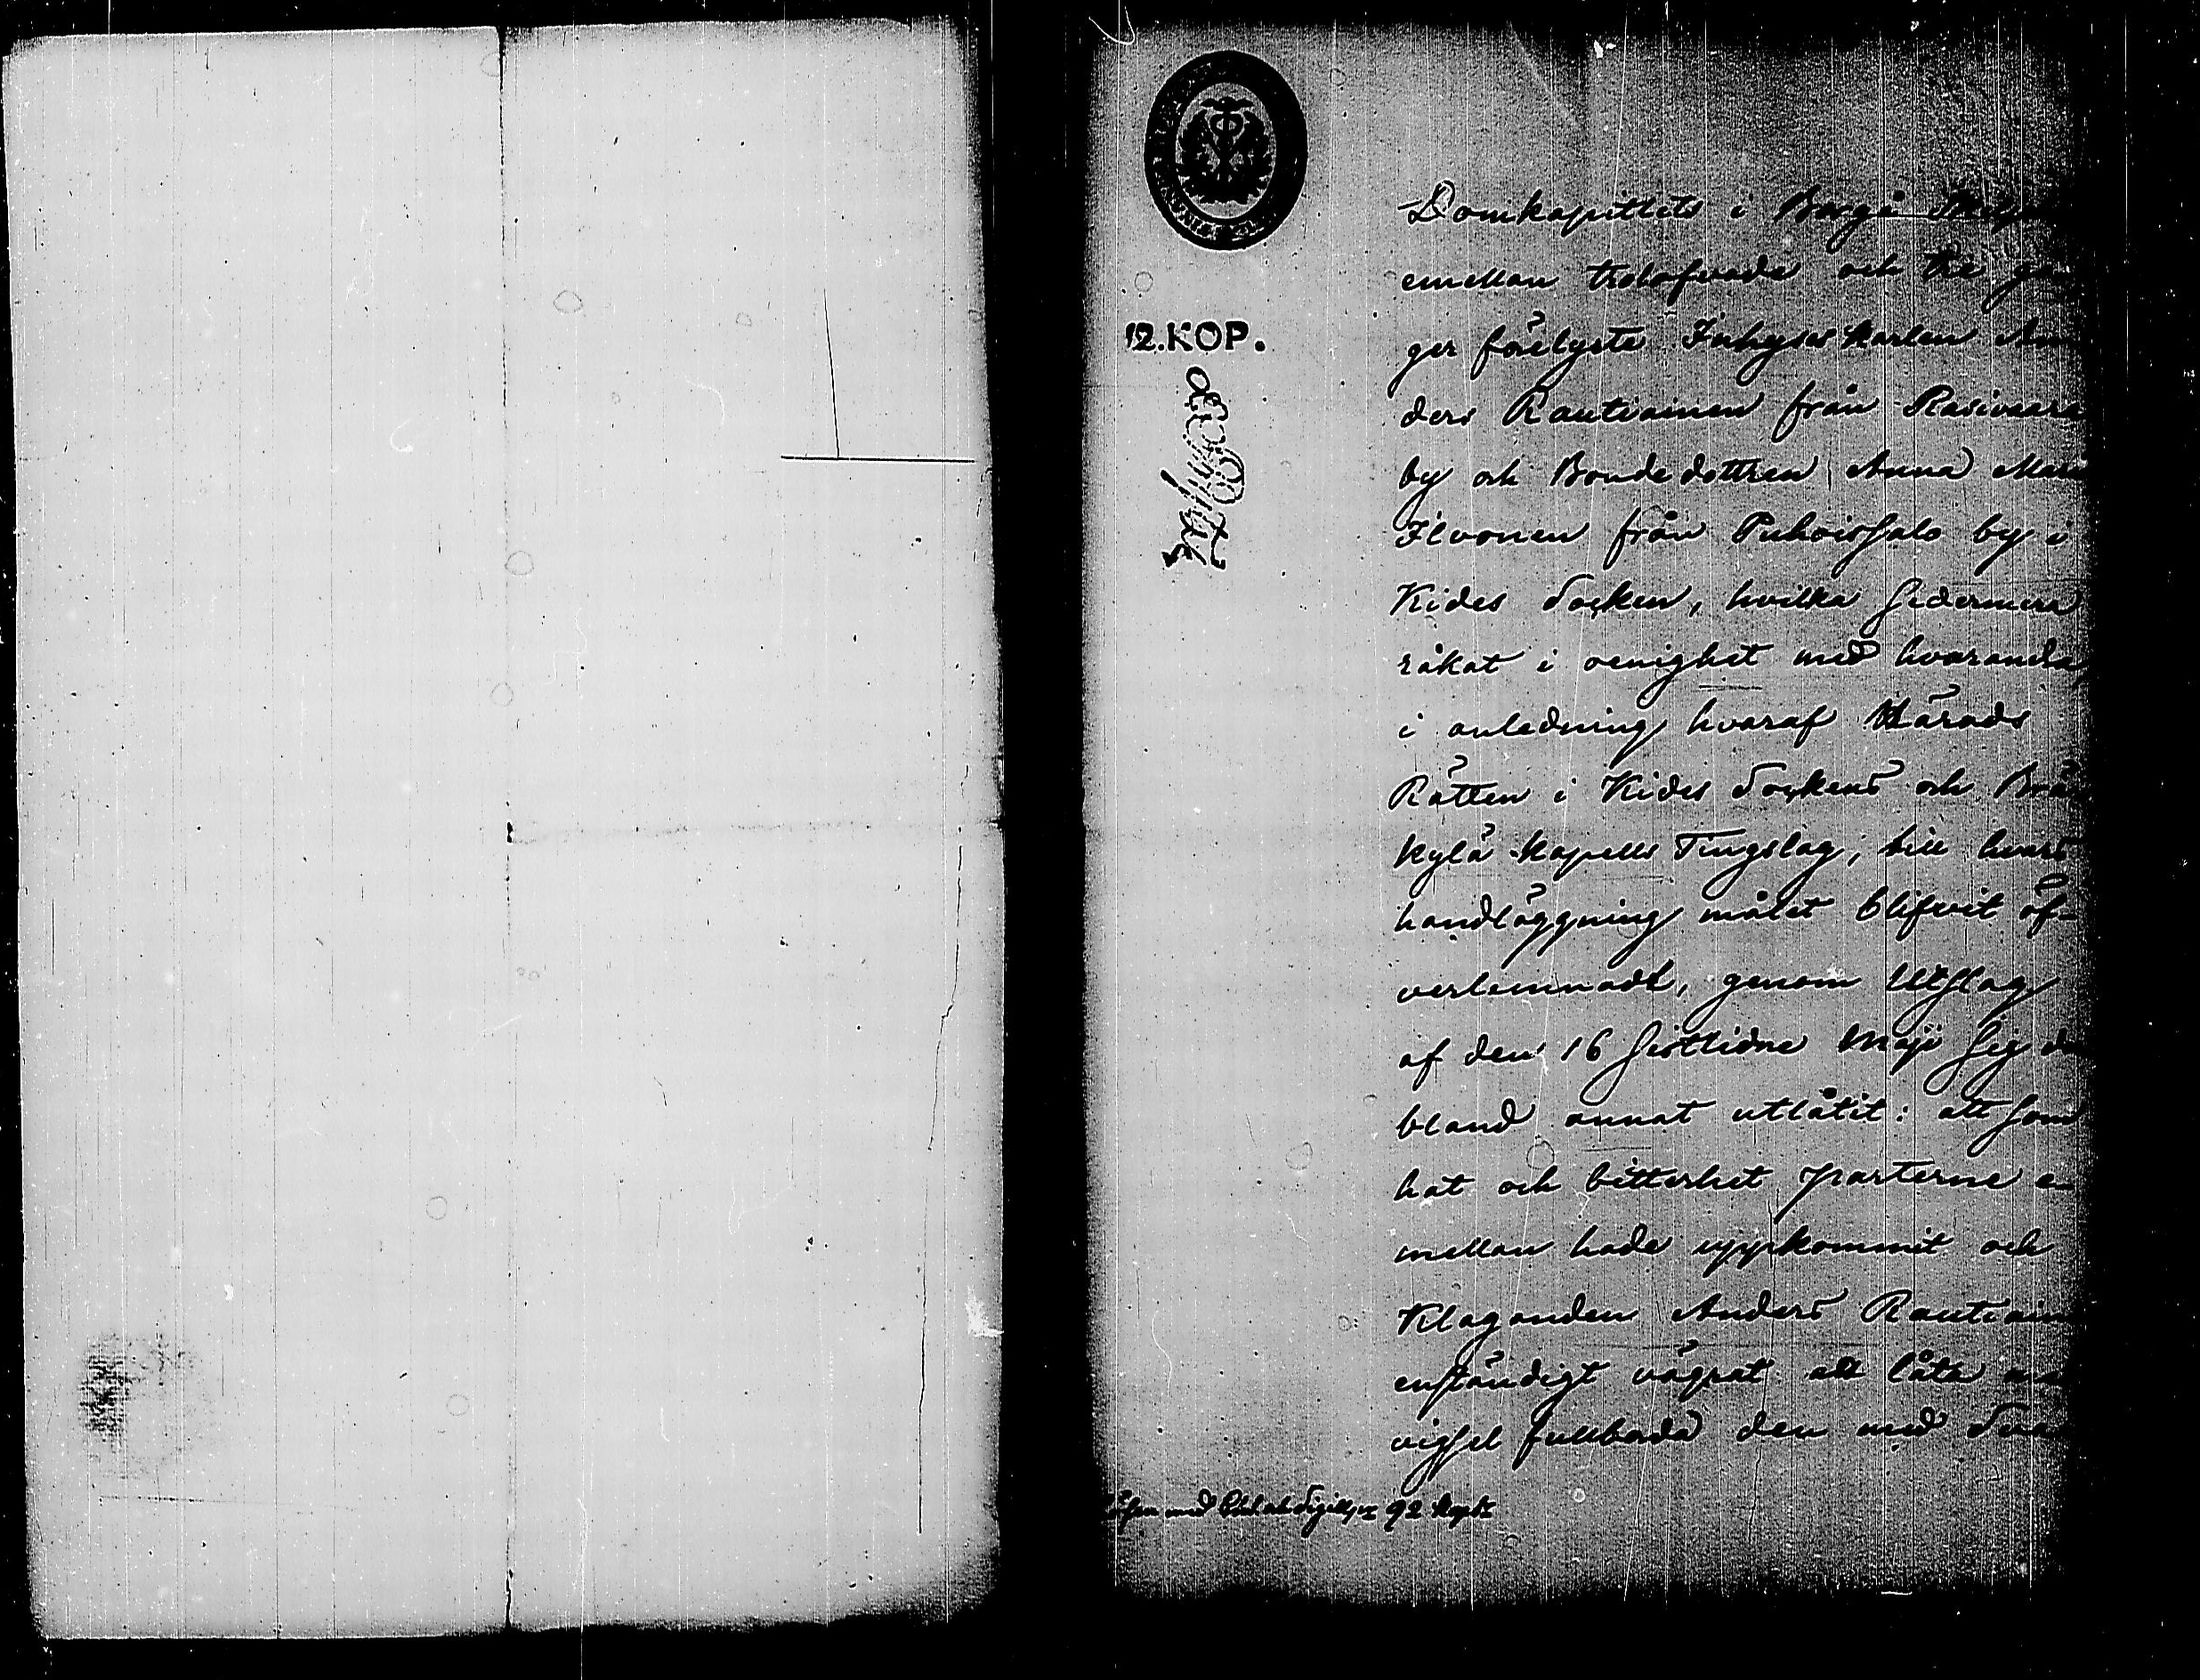 12.KOP.
Domkapitlets i Borgå
emellan trolofvade och tre gån
ger förelyste Inhyses karlen An
ders Rautiainen från Rasivaara
by och Bondedottren Anna Mar
Ilvonen från Puhoissalo by i
Kides Socken, hvilka sedermera
råkat i oenighet med hvarandra
i anledning hvaraf Härads
Rätten i Kides Sockens och Brä
kylä Kapells Tingslag, till hvars
handläggning målet blifvit öf-
verlemnadt, genom Utslag
af den 16 sistlidne Maji sig
bland annat utlåtit: att som
hat och bitterhet parterne e-
mellan hade uppkommit och
Klaganden Anders Rautiain
enständigt vägrat att låta
vigsel fullborda den med
med 92 kop